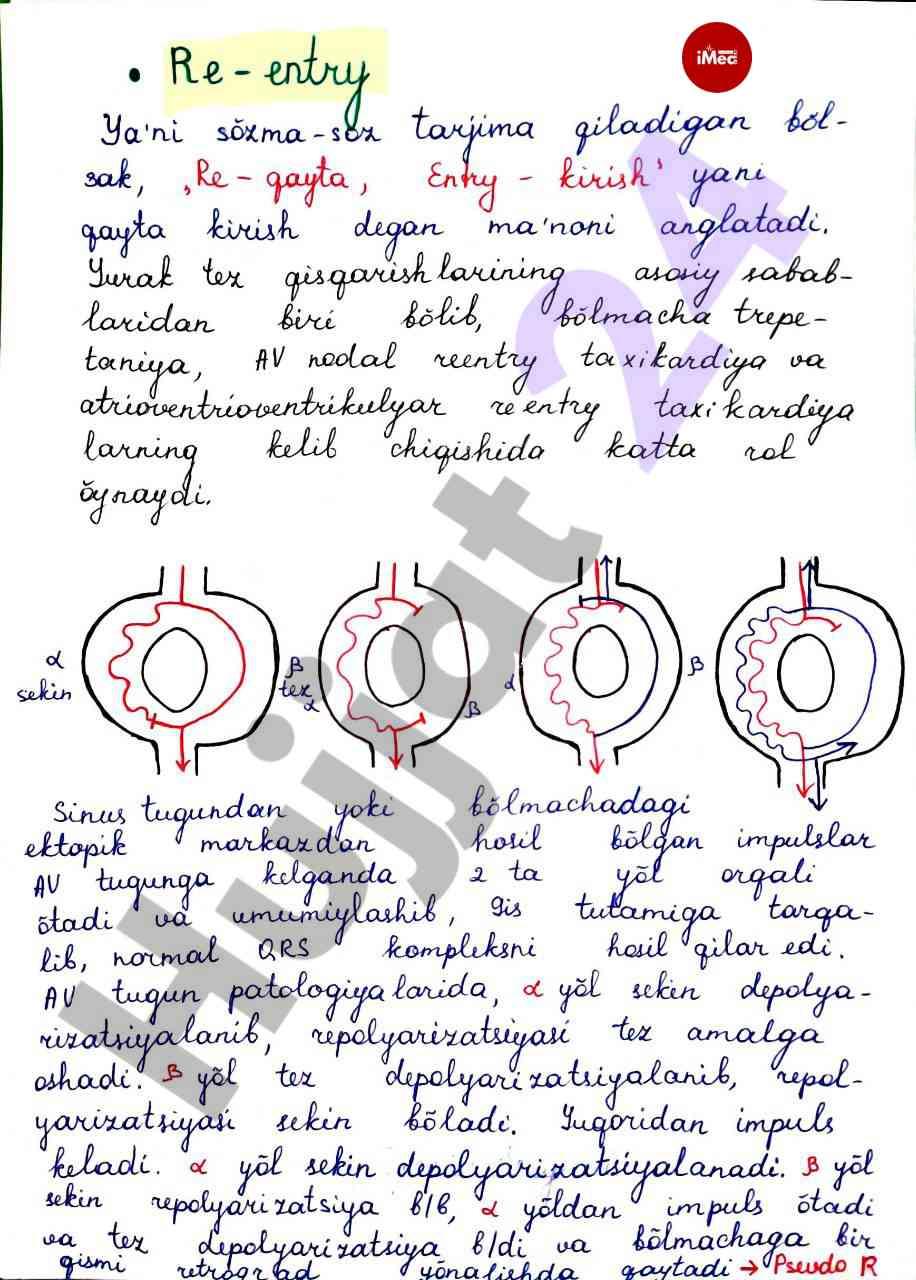 iMed
• Re-entry
Ya'ni sŏzma-sŏz tarjima qiladigan bŏl-
sak, ,Re-qayta, Entry-kirish' yani
qayta kirish degan ma'noni anglatadi.
Yurak tez qisqarishlarining asosiy sabab-
laridan biri bŏlib, bŏlmacha trepe-
taniya, AV nodal reentry taxikardiya va
atrioventrioventrikulyar reentry taxikardiya
larning kelib chiqishida katta rol
ŏynaydi.
α
sekin
β
tez
α
β
α
β
Sinus tugundan yoki bŏlmachadagi
ektopik markazdan hosil bŏlgan impulslar
AV tugunga kelganda 2 ta yŏl orqali
ŏtadi va umumiylashib, Gis tutamiga tarqa-
lib, normal QRS kompleksni hosil qilar edi.
AV tugun patologiyalarida, α yŏl sekin depolya-
rizatsiyalanib, repolyarizatsiyasi tez amalga
oshadi. β yŏl tez depolyarizatsiyalanib, repol-
yarizatsiyasi sekin bŏladi. Yuqoridan impuls
keladi. α yŏl sekin depolyarizatsiyalanadi. β yŏl
sekin repolyarizatsiya b/b, α yŏldan impuls ŏtadi
va tez depolyarizatsiya b/di va bŏlmachaga bir
qismi retrograd yŏnalishda qaytadi → Pseudo R
Hujjat 24